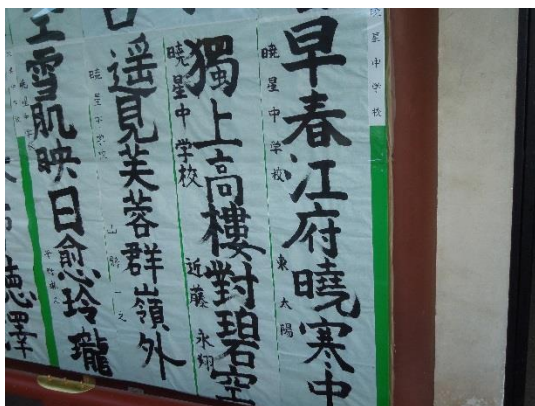 暁星中学校
早春江府曉寒中
暁星中学校 東太陽
獨上高樓對碧空
暁星中学校 近藤永翔
遥見芙蓉群嶺外
暁星中学校
雪肌映日愈玲瓏
徳澤